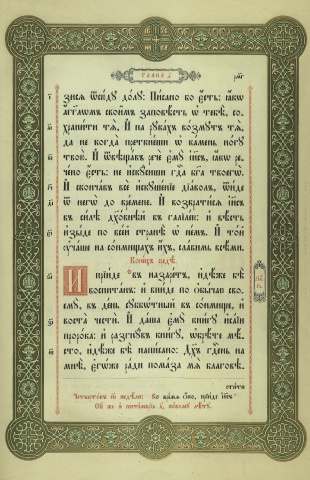 Глава д҃.
зисѧ ѿсюдꙋ долꙋ: Писано бо є҆сть: ꙗ҆кѡ
а҆́гг҃лѡмъ свои̑мъ заповѣсть ѡ҆ тебѣ, со-
хранити тѧ̀. И҆ на рꙋкахъ возмꙋтъ тѧ̀,
да не когда преткнеши ѡ҆ камень ногꙋ
твою̀. И҆ ѿвѣщавъ рече є҆мꙋ і҆и҃съ, ꙗ҆кѡ ре-
чено є҆сть: не и҆скꙋсиши гдⷭ҇а бг҃а твоегѡ̀.
И҆ скончавъ все и҆скꙋшенїе дїаволъ, ѿиде
ѿ негѡ̀ до времене. И҆ возвратисѧ і҆и҃съ
въ силѣ дх҃овнѣй въ галїлею: и҆ вѣсть
и҆зыде по всей странѣ ѡ҆ немъ. И҆ той
ᲂу҆чаше на сонмищахъ и҆́хъ, славимь всѣми.
Конецъ недѣ.
И҆ прїиде въ назаретъ, и҆дѣже бѣ
воспитанъ: и҆ вниде по ѡ҆бычаю сво-
емꙋ, въ день сꙋббѡтный въ сонмище, и҆
воста чести. И҆ даша є҆мꙋ книгꙋ и҆саїи
пророка: и҆ разгнꙋвъ книгꙋ, ѡ҆брѣте мѣ-
сто, и҆дѣже бѣ написано: Дх҃ъ гдⷭ҇ень на
мнѣ, є҆гѡже ради помаза мѧ̀ благовѣ-
стити